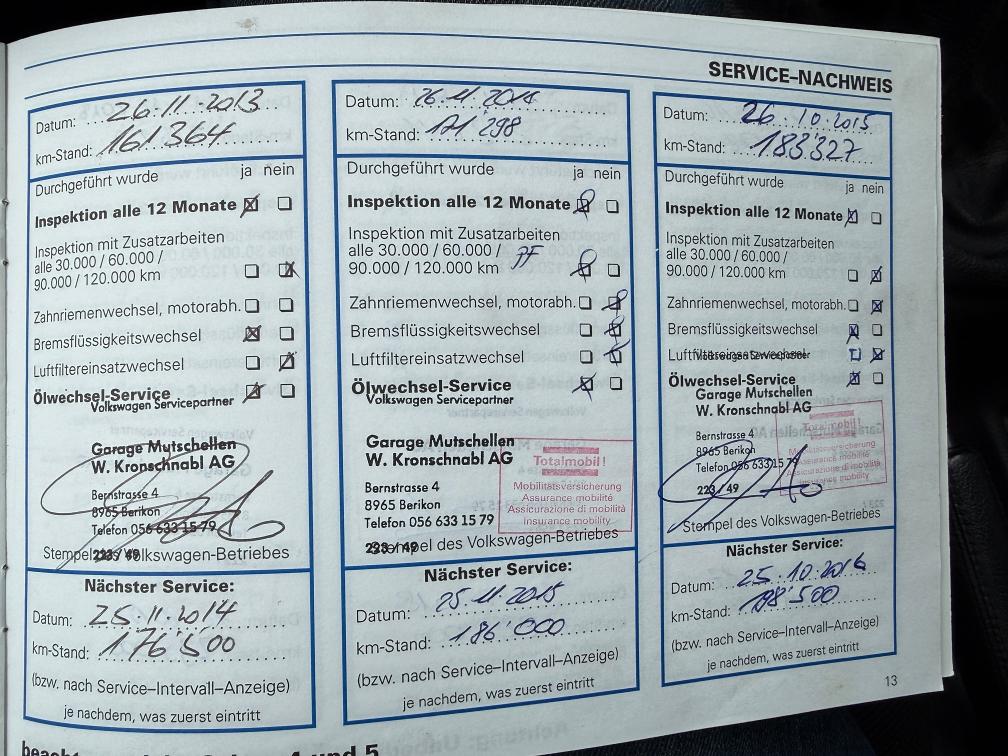 SERVICE–NACHWEIS
Datum: 26.11.2013
km-Stand: 161'364
Durchgeführt wurde ja nein
Inspektion alle 12 Monate
Inspektion mit Zusatzarbeiten
alle 30.000 / 60.000 /
90.000 / 120.000 km
Zahnriemenwechsel, motorabh.
Bremsflüssigkeitswechsel
Luftfiltereinsatzwechsel
Ölwechsel-Service
Volkswagen Servicepartner
Garage Mutschellen
W. Kronschnabl AG
Bernstrasse 4
8965 Berikon
Telefon 056 633 15 79
223 / 49
Stempel des Volkswagen-Betriebes
Nächster Service:
Datum: 25.11.2014
km-Stand: 176'500
(bzw. nach Service–Intervall–Anzeige)
je nachdem, was zuerst eintritt
Datum: 26.11.2014
km-Stand: 171'298
Durchgeführt wurde ja nein
Inspektion alle 12 Monate
Inspektion mit Zusatzarbeiten
alle 30.000 / 60.000 /
90.000 / 120.000 km
Zahnriemenwechsel, motorabh.
Bremsflüssigkeitswechsel
Luftfiltereinsatzwechsel
Ölwechsel-Service
Volkswagen Servicepartner
Garage Mutschellen
W. Kronschnabl AG
Bernstrasse 4
8965 Berikon
Telefon 056 633 15 79
223 / 49
Totalmobil!
Mobilitätsversicherung
Assurance mobilité
Assicurazione di mobilità
Insurance mobility
Stempel des Volkswagen-Betriebes
Nächster Service:
Datum: 25.11.2015
km-Stand: 186'000
(bzw. nach Service–Intervall–Anzeige)
je nachdem, was zuerst eintritt
Datum: 26.10.2015
km-Stand: 183'327
Durchgeführt wurde ja nein
Inspektion alle 12 Monate
Inspektion mit Zusatzarbeiten
alle 30.000 / 60.000 /
90.000 / 120.000 km
Zahnriemenwechsel, motorabh.
Bremsflüssigkeitswechsel
Luftfiltereinsatzwechsel
Volkswagen Servicepartner
Ölwechsel-Service
Garage Mutschellen
W. Kronschnabl AG
Bernstrasse 4
8965 Berikon
Telefon 056 633 15 79
223 / 49
Totalmobil!
Mobilitätsversicherung
Assurance mobilité
Assicurazione di mobilità
Insurance mobility
Stempel des Volkswagen-Betriebes
Nächster Service:
Datum: 25.10.2016
km-Stand: 198'500
(bzw. nach Service–Intervall–Anzeige)
je nachdem, was zuerst eintritt
13